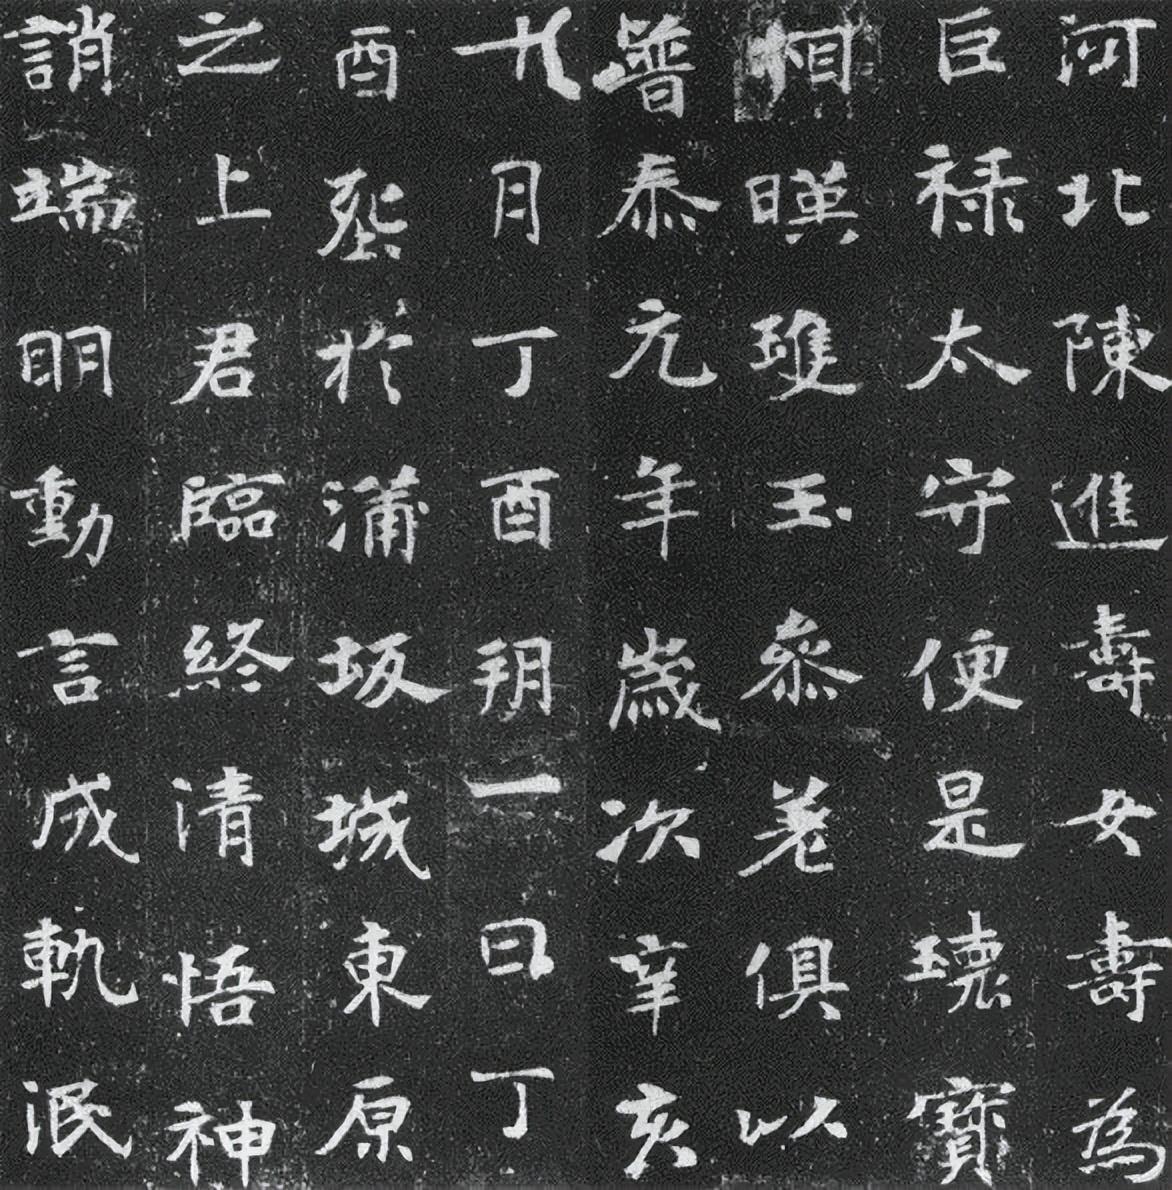 河北陳進壽女壽為
巨祿太守便是瓌寶
相暎瓊玉參差俱以
普泰元年歲次辛亥
十月丁酉朔一日丁
酉葬於蒲坂城東原
之上君臨終清悟神
誚端明動言成軌泯